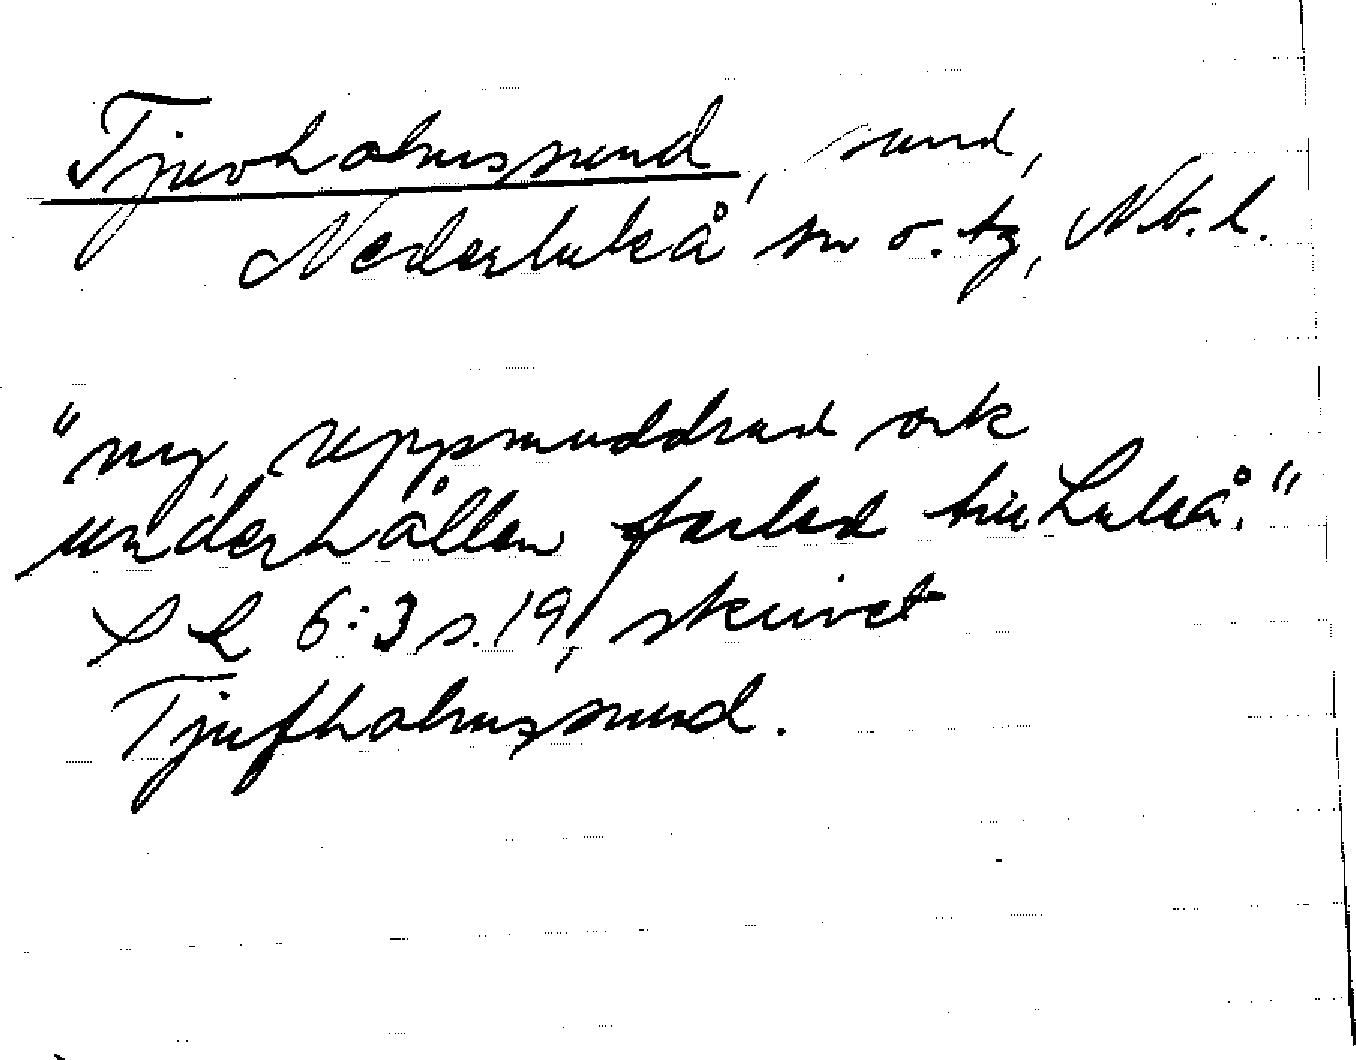 Tjuvholmssund, sund,
Nederluleå sn o. tg, Nb. l.
"ny, uppmuddrad ock
underhållen farled till Luleå."
SL 6:3 s. 19, skrivet
Tjufholmssund.